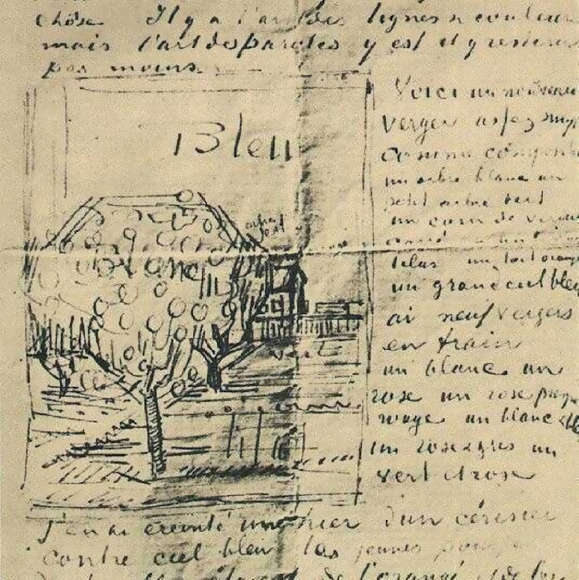 chose. Il y a l'art des lignes & couleurs
mais l'art des paroles y est et y restera
pas moins.
Bleu
Blanc
vert
lilas
Voici un nouveau
verger assez simple
comme composition
un arbre blanc un
petit arbre vert
un coin de verdure
lilas un toit orangé
un grand ciel bleu
ai neuf vergers
en train
un blanc un
rose un rose presque
rouge un blanc & bleu
un rose & gris un
vert et rose
J'en ai éreinté un hier d'un cerisier
contre ciel bleu les jeunes
de l'orangé